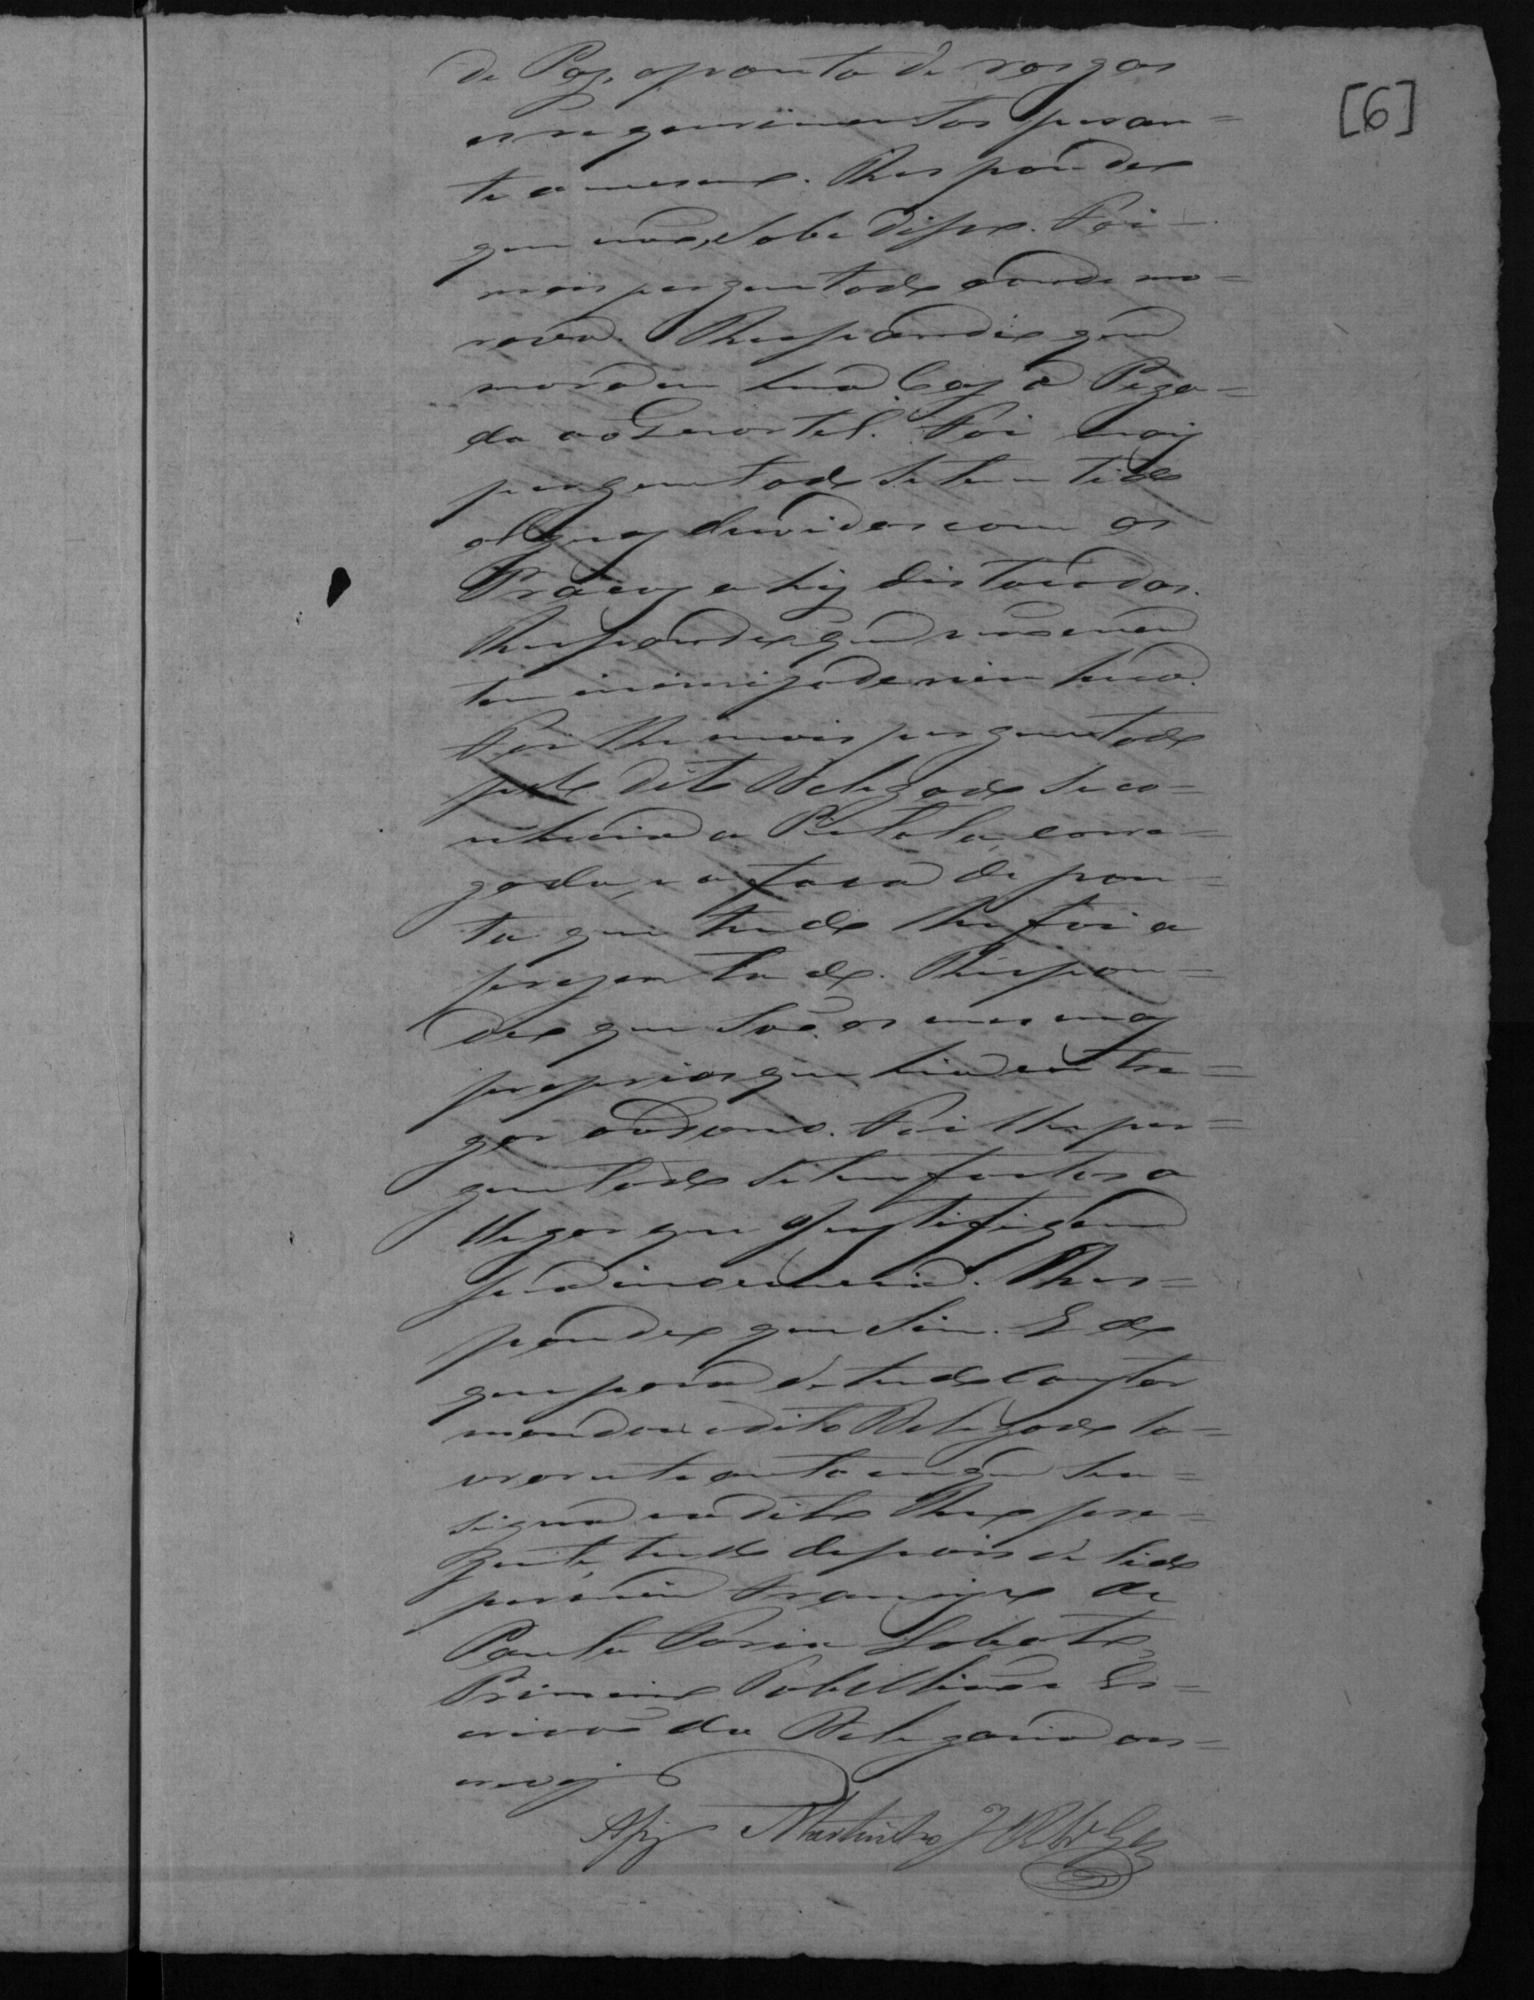 [6]
de Paz, aponto de rasgar
os requerimentos peran=
te o mesmo. Respondeo
que não, sobe disso. Foi
mais perguntado aonde mo=
rava. Respondeo que
mora em hua Caza Pega=
da ao Quartel. Foi mais
perguntado se tem tido
alguas duvidas com os
Praças a hi destacadas.
Respondeo que não nem
tem inimizade nenhua.
Foi lhe mais perguntado
pelo dito Delegado se co=
nhecia a Pistola, carre=
gada, e a faca de pon=
ta que tudo lhe foi a
prezentado. Respon=
deo que são os mesmos
proprios que hia entre=
gar ao dono. Foi lhe per=
guntado se tem factos a
llegar que justifiquem
sua inocencia. Res=
pondeo que sim. E do
que para de tudo Constar
mandou o dito Delegado la=
vrar este auto em que
signa o dito Reo pre=
zente, tudo depois de lido
por mim Francisco de
Paula Faria Lobato,
Primeiro Tabellião e Es=
crivão da Delegacia o es=
crevi
Martinho J